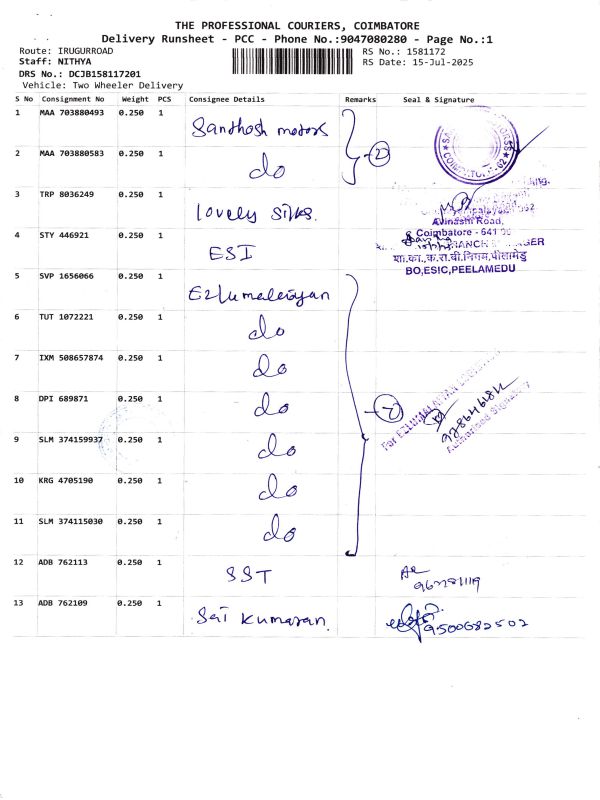 THE PROFESSIONAL COURIERS, COIMBATORE
Delivery Runsheet - PCC - Phone No.:9047080280 - Page No.:1
Route: IRUGURROAD
Staff: NITHYA
DRS No.: DCJB158117201
Vehicle: Two Wheeler Delivery
RS No.: 1581172
RS Date: 15-Jul-2025
S No Consignment No Weight PCS Consignee Details Remarks Seal & Signature
1 MAA 703880493 0.250 1 Santhosh motors
2 MAA 703880583 0.250 1 do 2
COIMBATORE-62
3 TRP 8036249 0.250 1 Lovely Silks.
Avinashi Road,
Coimbatore - 641
4 STY 446921 0.250 1 ESI
BRANCH MANAGER
शा.का.,क.रा.बी.निगम,पीलामेडु
BO,ESIC,PEELAMEDU
5 SVP 1656066 0.250 1 Ezhumalaiyan
6 TUT 1072221 0.250 1 do
7 IXM 508657874 0.250 1 do
8 DPI 689871 0.250 1 do 7
For EZHUMALAIYAN
Authorised Signatory
9 SLM 374159937 0.250 1 do
10 KRG 4705190 0.250 1 do
11 SLM 374115030 0.250 1 do
12 ADB 762113 0.250 1 SST
13 ADB 762109 0.250 1 Sai Kumaran. 9500682502